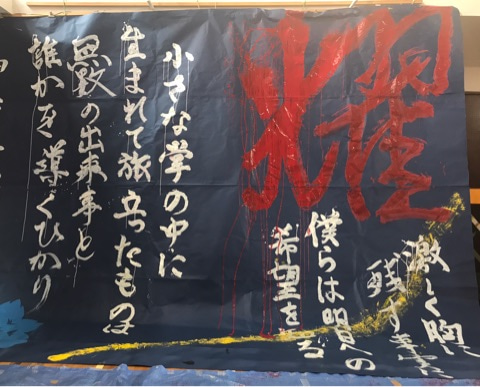 耀
激しく胸に
残す
僕らは明への
希望を
小さな掌の中に
生まれて旅立ったものは
無数の出来事と
誰かを導くひかり